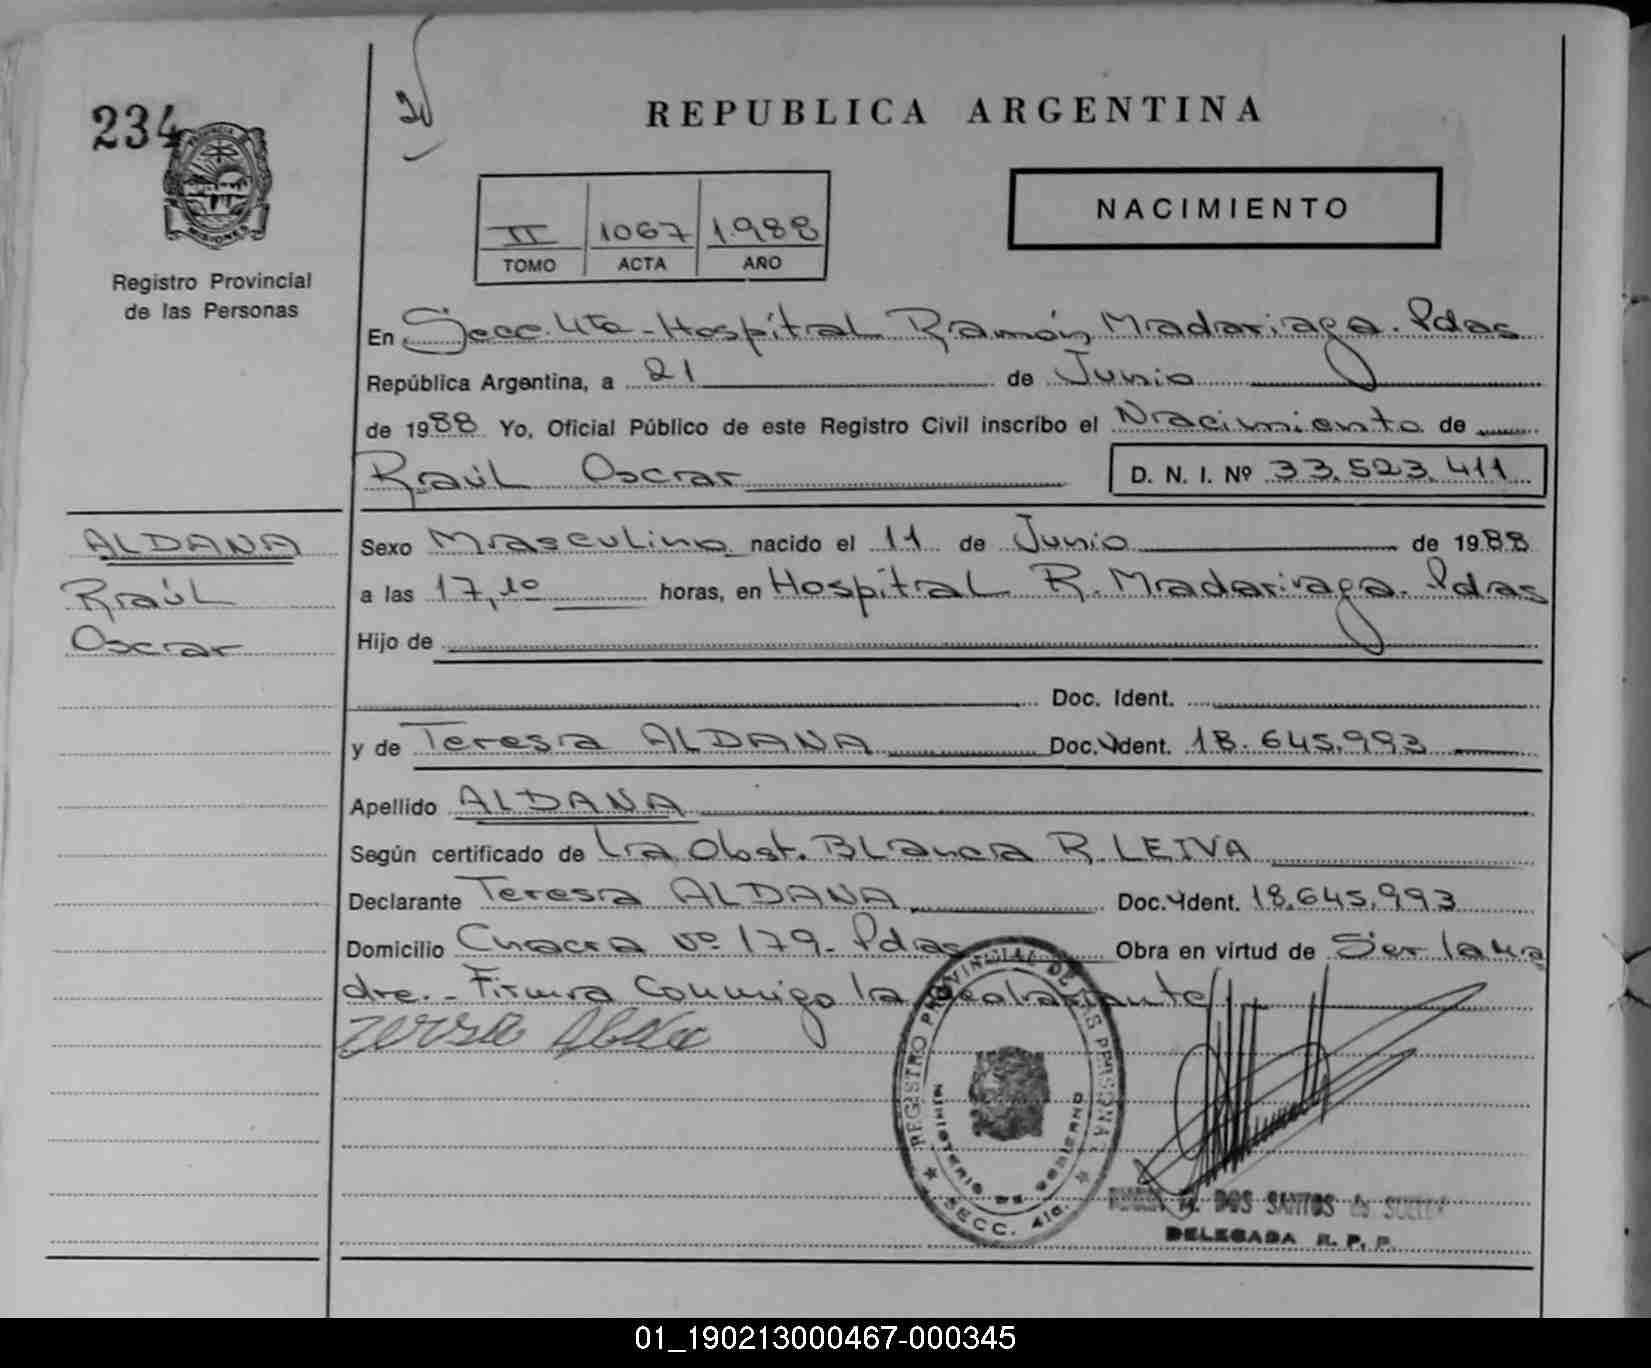 234
PROVINCIA DE MISIONES
Registro Provincial
de las Personas
REPUBLICA ARGENTINA
NACIMIENTO
II 1067 1.988
TOMO ACTA AÑO
En Secc. 4ta - Hospital Ramón Madariaga. Pdas
República Argentina, a 21 de Junio
de 1988 Yo, Oficial Público de este Registro Civil inscribo el Nacimiento de
Raúl Oscar D. N. I. Nº 33.523.411
ALDANA
Raúl
Oscar
Sexo Masculino nacido el 11 de Junio de 1988
a las 17,10 horas, en Hospital R. Madariaga. Pdas
Hijo de
Doc. Ident.
y de Teresa ALDANA Doc. Ident. 18.645.993
Apellido ALDANA
Según certificado de La Obst. BLanca R. LEIVA
Declarante Teresa ALDANA Doc. Ident. 18.645.993
Domicilio Chacra Nº 179- Pdas Obra en virtud de Ser la ma
dre.- Firma Conmigo la declarante
REGISTRO PROVINCIAL DE LAS PERSONAS
MINISTERIO DE GOBIERNO
SECC. 4ta.
M. DOS SANTOS de
DELEGADA R. P. P.
01_190213000467-000345